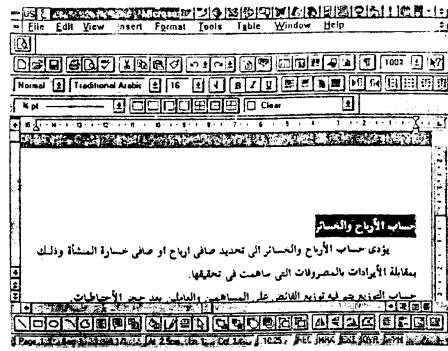 File Edit View Insert Format Tools Table Window Help
100%
Normal Traditional Arabic 16 B I U
¾ pt Clear
حساب الأرباح والخسائر
يؤدى حساب الأرباح والخسائر الى تحديد صافى ارباح او صافى خسارة المنشأة وذلك
بمقابلة الأيرادات بالمصروفات التى ساهمت فى تحقيقها.
حساب التوزيع يتم فيه توزيع الفائض على المساهمين والعاملين بعد حجز الأحتياطيات.
Page 1 At 2.5cm Ln 1 Col 10:25 REC MRK EXT OVR WPH